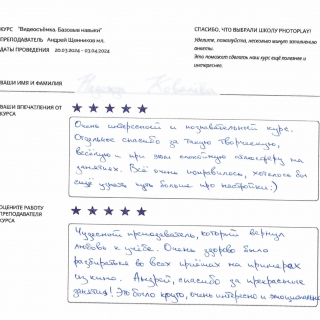 КУРС "Видеосъёмка. Базовые навыки"
ПРЕПОДАВАТЕЛЬ Андрей Щенников мл.
ДАТЫ ПРОВЕДЕНИЯ 20.03.2024 - 03.04.2024
СПАСИБО, ЧТО ВЫБРАЛИ ШКОЛУ PHOTOPLAY!
Уделите, пожалуйста, несколько минут заполнению анкеты.
Это поможет сделать наш курс ещё полезнее и интереснее.
ВАШИ ИМЯ И ФАМИЛИЯ
ВАШИ ВПЕЧАТЛЕНИЯ ОТ
КУРСА
Очень интересный и познавательный курс.
Отдельное спасибо за такую творческую,
весёлую - при этом спокойную атмосферу на
занятиях. Всё очень понравилось, хотелось бы
ещё узнать чуть больше про настройки :)
ОЦЕНИТЕ РАБОТУ
ПРЕПОДАВАТЕЛЯ
КУРСА
Чудесный преподаватель, который вернул
любовь к учёбе. Очень здорово было
разбираться во всех приёмах на примерах
из кино. Андрей, спасибо за прекрасные
занятия! Это было круто, очень интересно и эмоционально